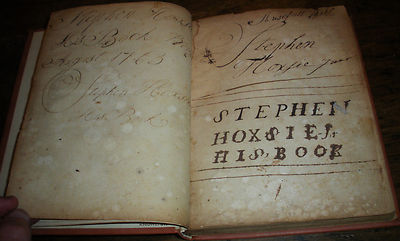 Stephen Hoxsie
his Book
August 1763
Stephen Hoxsie
his Book
Stephen
Hoxsie
STEPHEN
HOXSIES
HIS BOOK